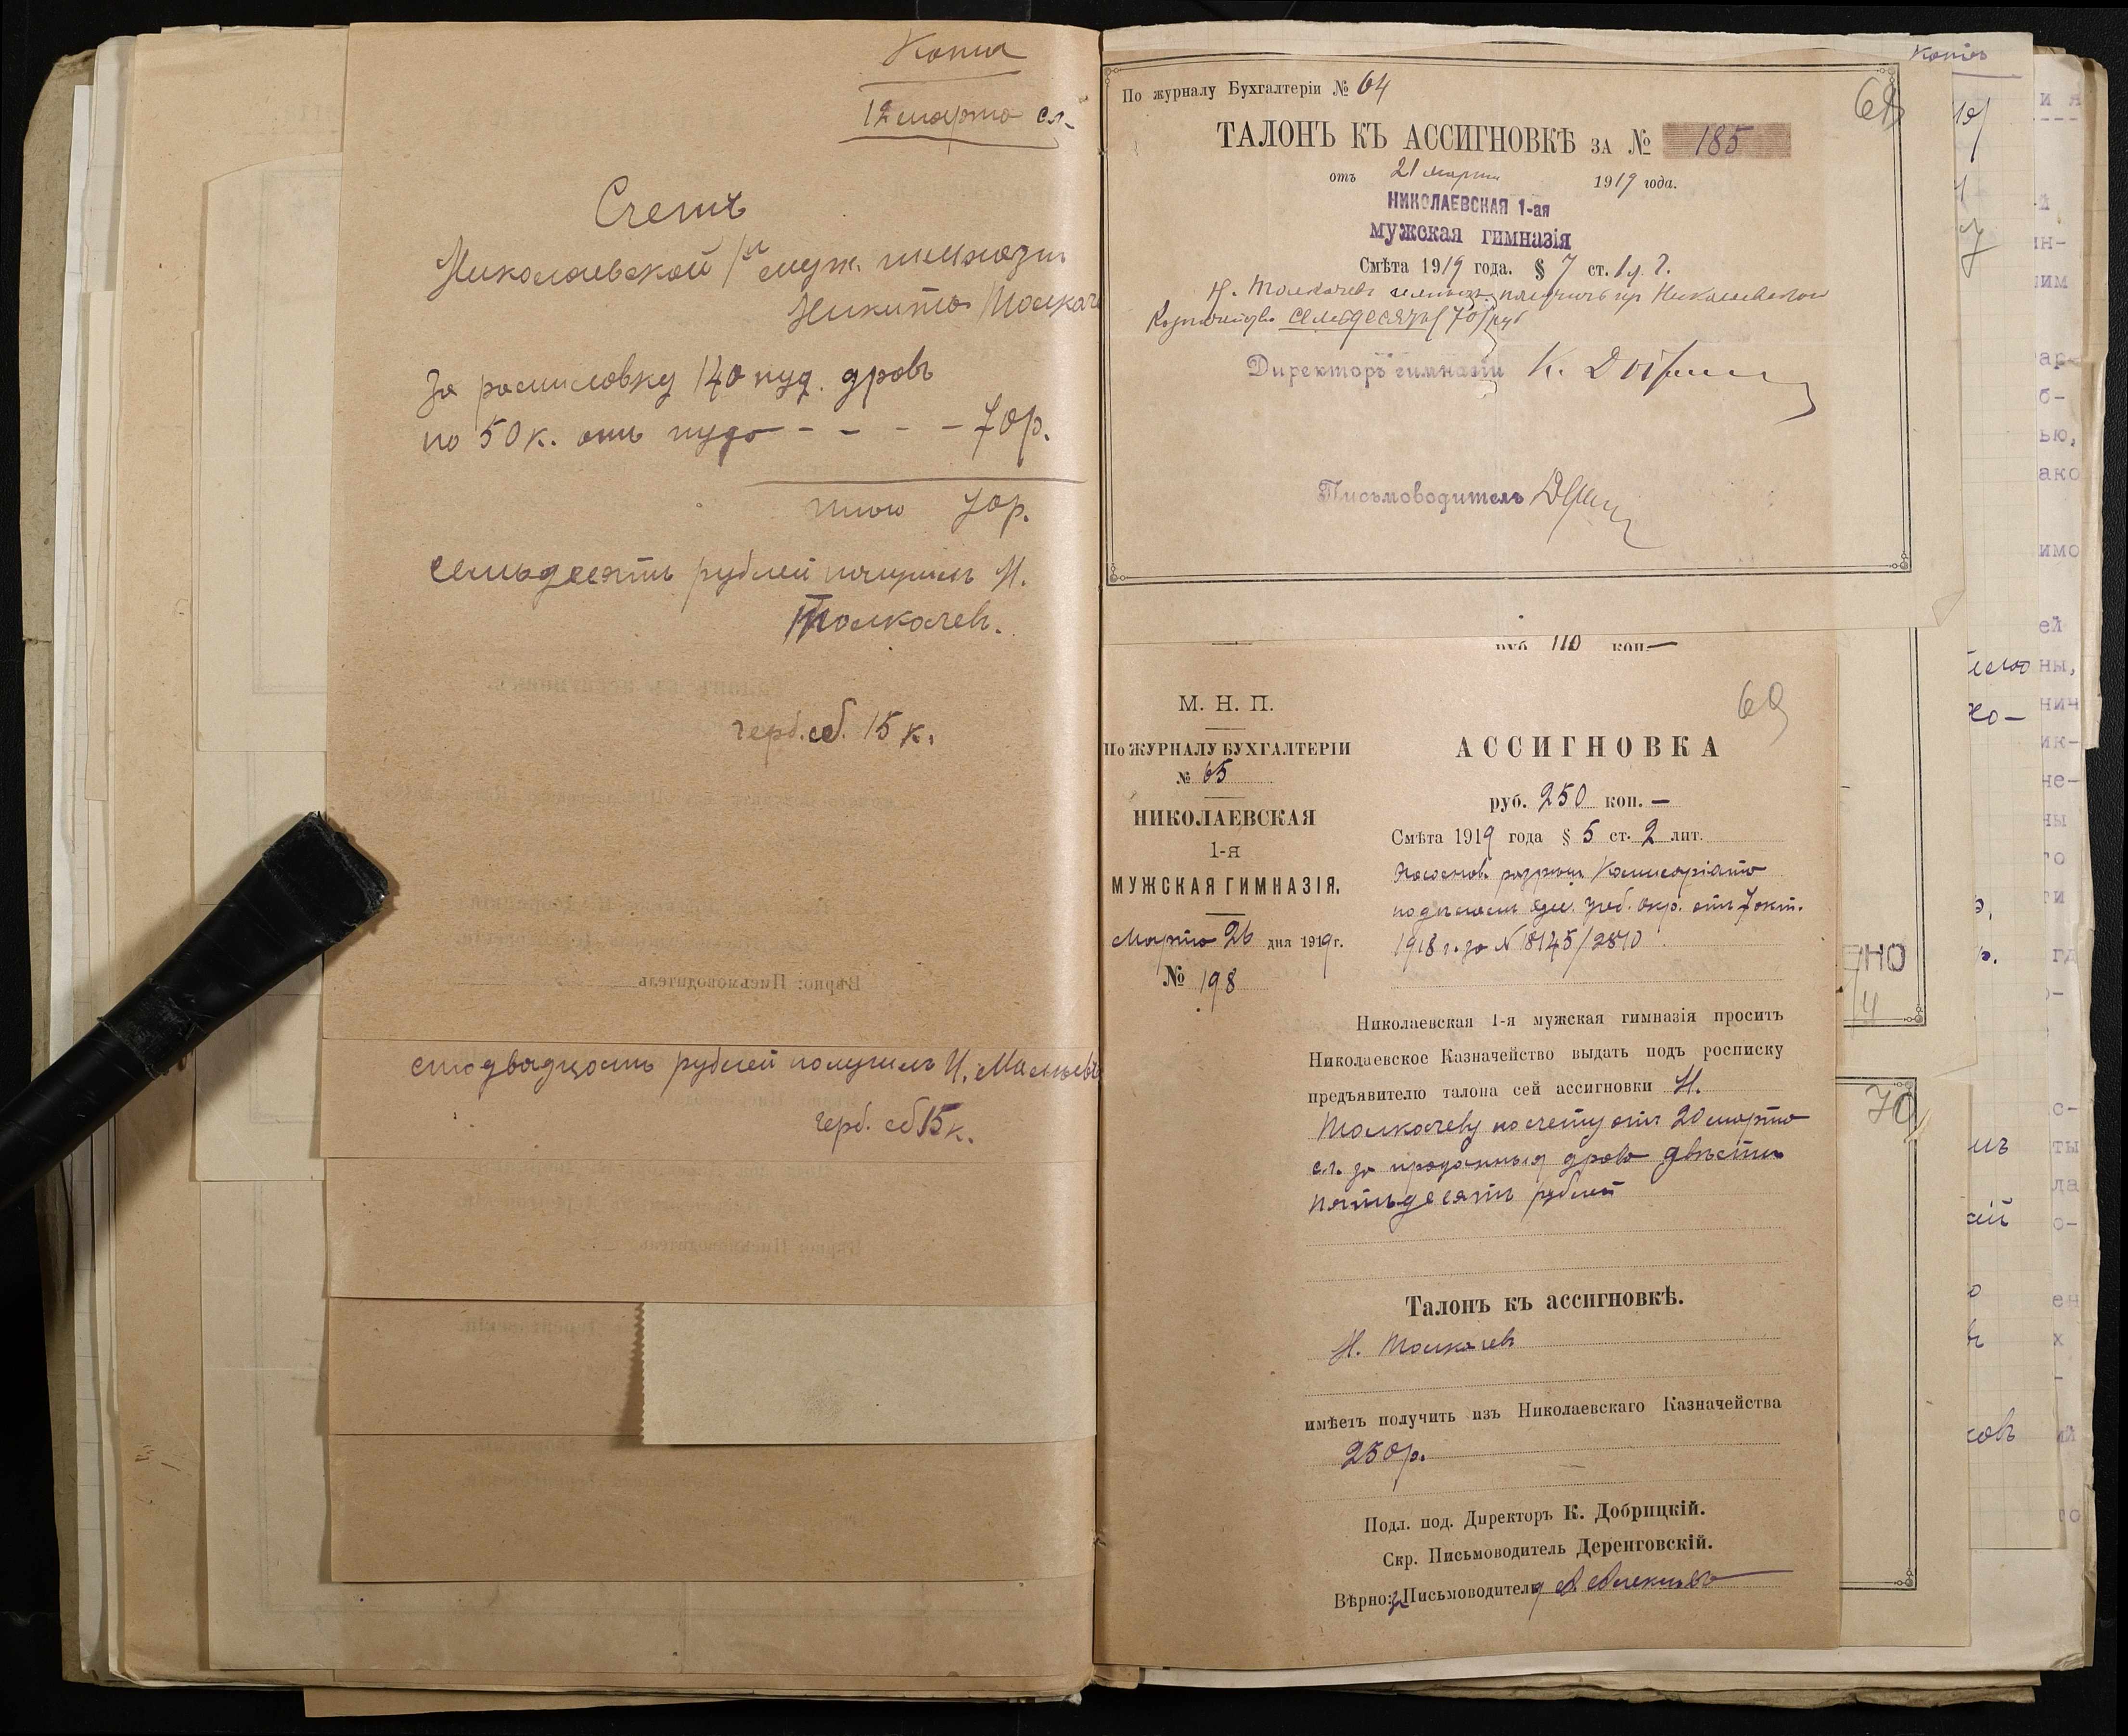 Копия
12 марта с.г.
Счетъ
Николаевской 1й муж. гимназіи
Никита Толкач
За распиловку 140 пуд. дровъ
по 50 к. отъ пуда - - - - 70 р.
итого 70р.
семьдесятъ рублей получилъ Н.
Толкачевъ.
герб. сб. 15 к.
Вѣрно: Письмоводитель
стодвадцать рублей получилъ И. Мальцевъ
герб. сб 15 к.
Вѣрно: Письмоводитель
По журналу Бухгалтеріи № 64
ТАЛОНЪ КЪ АССИГНОВКѢ ЗА № 185
отъ 21 марта 1919 года.
НИКОЛАЕВСКАЯ 1-ая
мужская гимназія
Смѣта 1919 года. § 7 ст. 1
Н. Толкачевъ имѣетъ получить Николаевскаго
Казначейства семьдесятъ (70) руб
Директоръ гимназіи К.
Письмоводитель
руб 110 коп —
69
М. Н. П.
По ЖУРНАЛУ БУХГАЛТЕРІИ
№ 65
НИКОЛАЕВСКАЯ
1-я
МУЖСКАЯ ГИМНАЗІЯ.
Марта 26 дня 1919 г.
№ 198
АССИГНОВКА
руб. 250 коп. —
Смѣта 1919 года § 5 ст. 2 лит.
На основ. разрѣш. Комиссаріата
по дѣламъ Оде. учеб. окр. отъ 7 окт.
1918 г. за № 18145/2810
Николаевская 1-я мужская гимназія проситъ
Николаевское Казначейство выдать подъ росписку
предъявителю талона сей ассигновки Н.
Толкачеву по счету отъ 20 марта
с.г. за проданныя дрова двѣсти
пятьдесятъ рублей
Талонъ къ ассигновкѣ.
Н. Толкачевъ
имѣетъ получить изъ Николаевскаго Казначейства
250 р.
Подл. под. Директоръ К. Добрицкій.
Скр. Письмоводитель Деренговскій.
Вѣрно: Письмоводитель
70
Копія